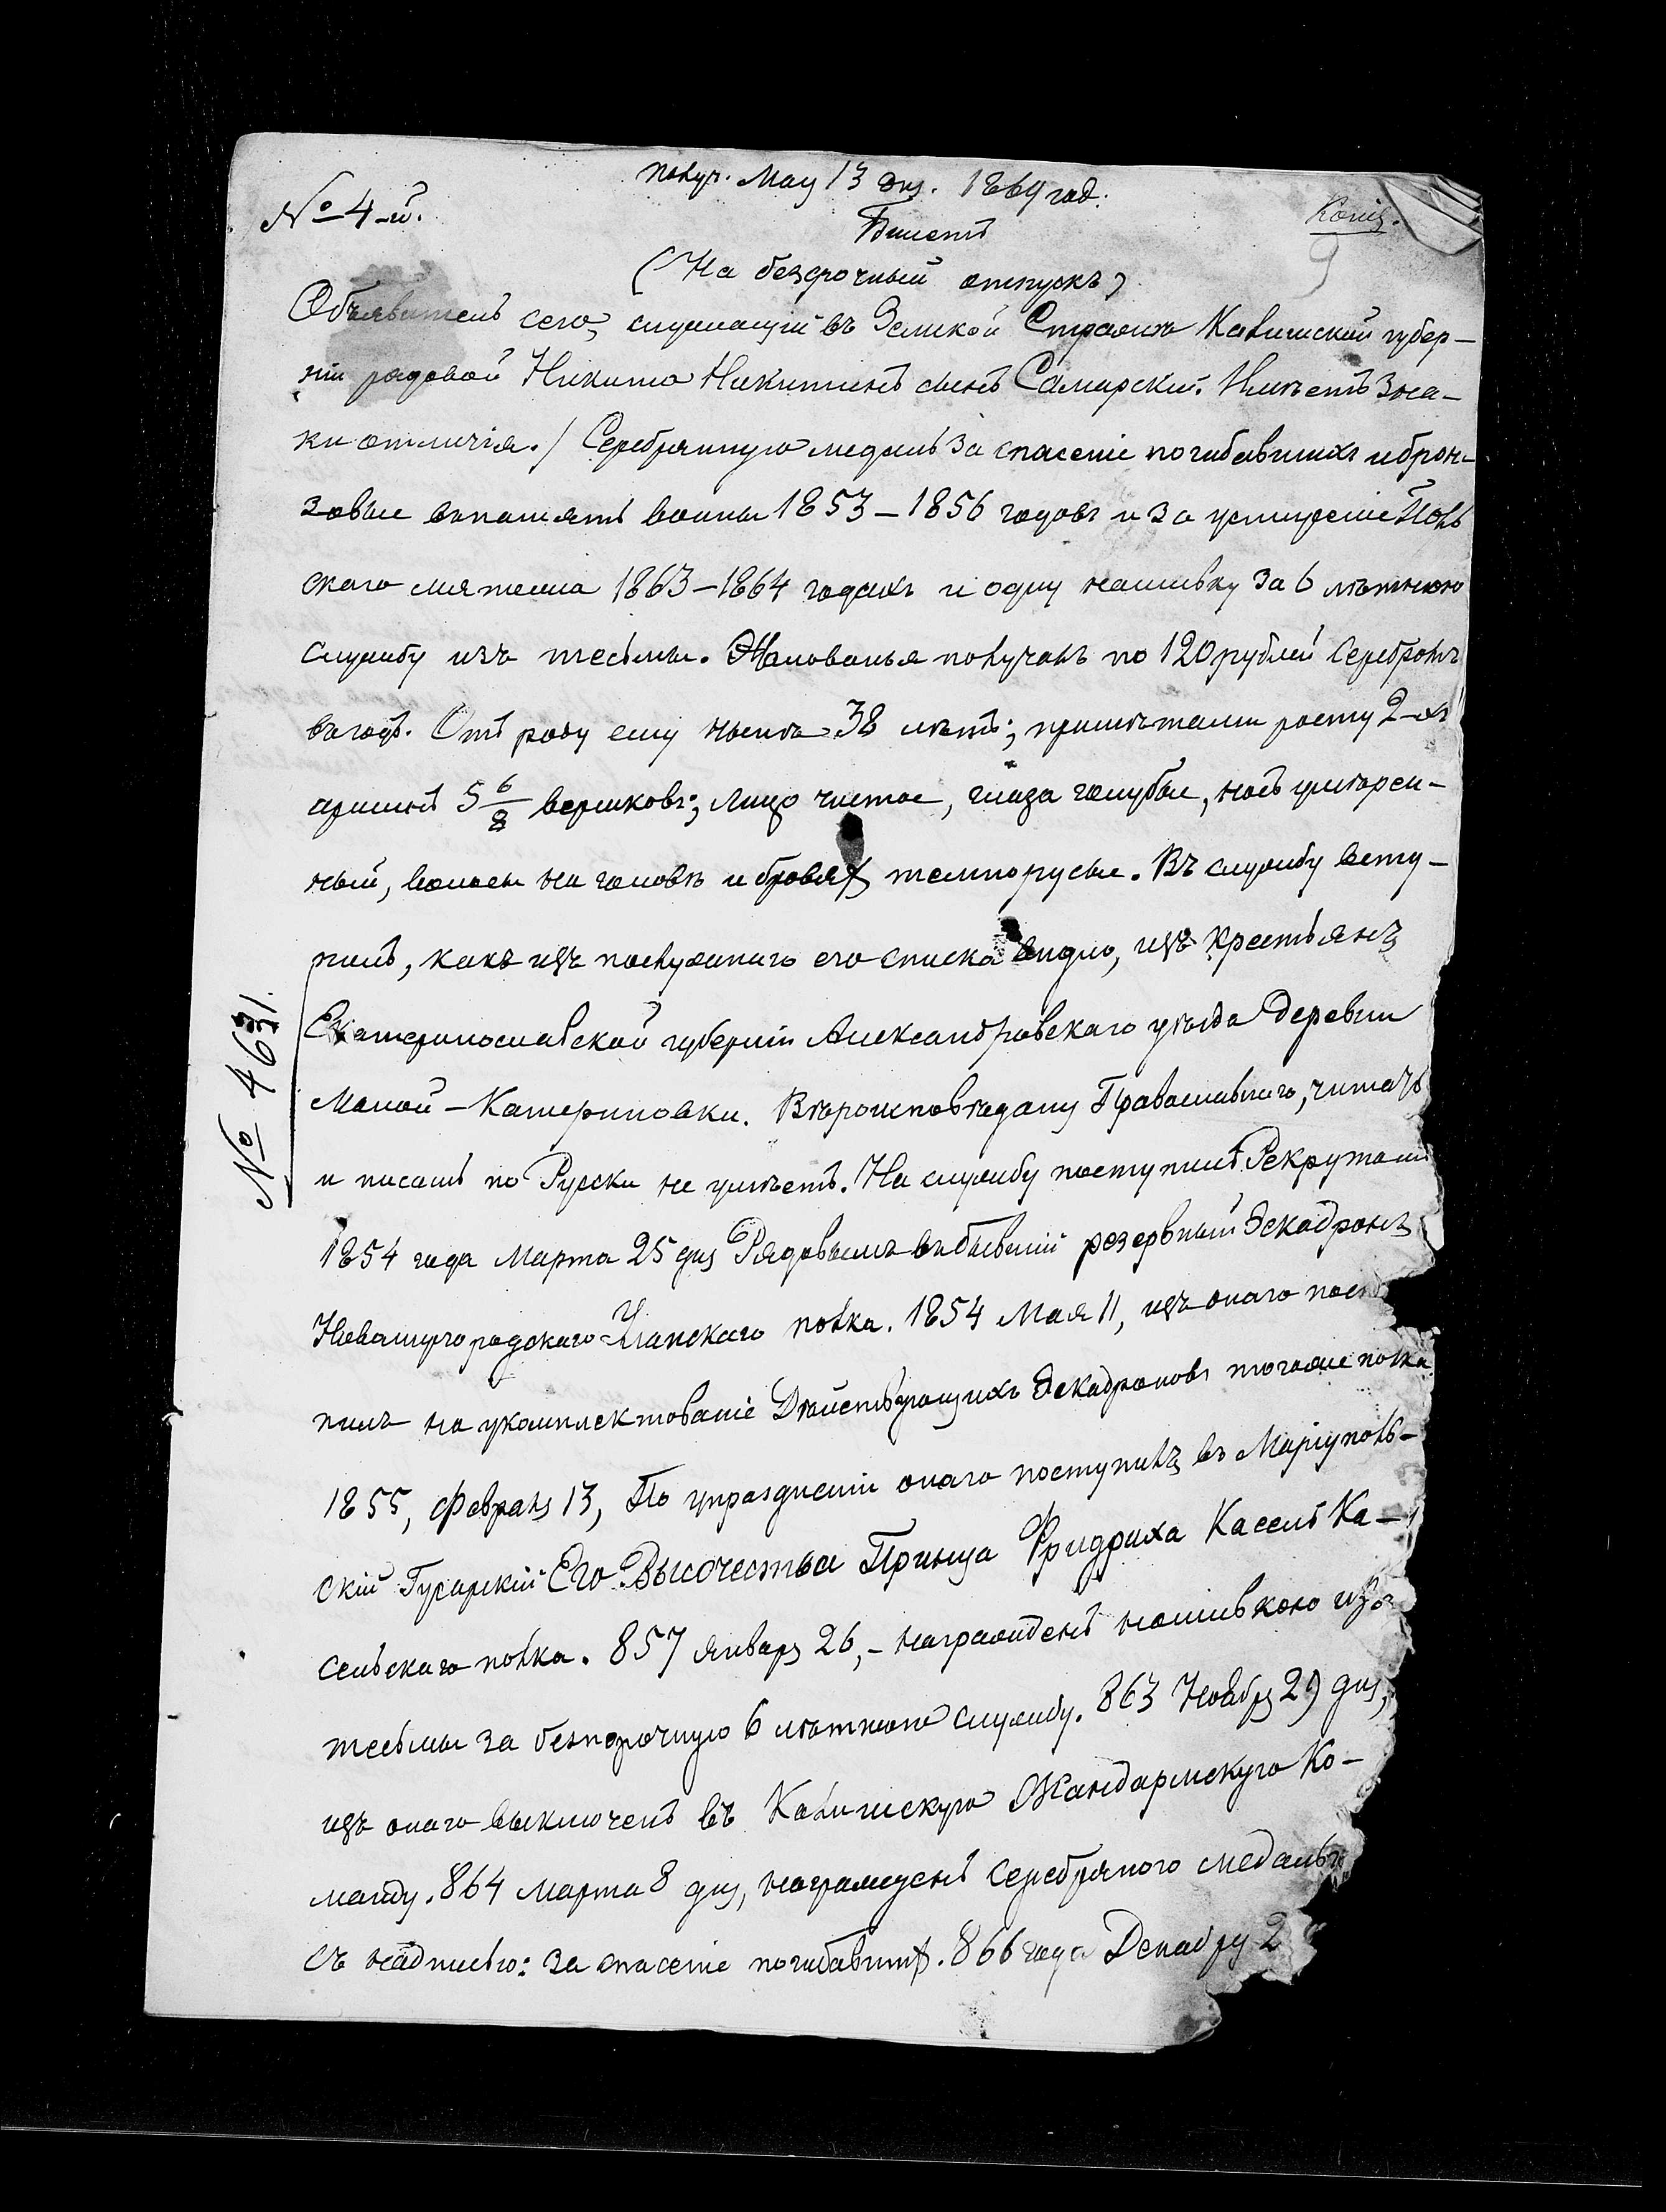 Получ. Мая 13 дня. 1869 год.
№ 4-й.
Копія.
Билетъ
9
(На безсрочный отпускъ)
Объявитель сего, служащій въ Земской Стражѣ Калишской губер-
ніи рядовой Никита Никитинъ сынъ Самарскій. Имѣетъ Зна-
ки отличія. / Серебрянную медаль За спасеніе погибавшихъ и брон-
зовые въ память войны 1853-1856 годовъ и За усмиреніе Поль
скаго мятежа 1863-1864 годахъ и одну нашивку За 6 лѣтнюю
службу изъ тесьмы. Жалованья получалъ по 120 рублей Серебромъ
въ годъ. Отъ роду ему нынѣ 38 лѣтъ; примѣтами росту 2-хъ
аршинъ 5 6/8 вершковъ; лицо чистое, глаза голубые, носъ умѣрен-
ный, волосы на головѣ и бровях темнорусые. Въ службу всту-
пилъ, какъ изъ послужнаго его списка видно, изъ крестьянъ
Екатеринославской губерніи Александровскаго уѣзда деревни
Малой-Катериновки. Вѣроисповѣданія Православнаго, читать
и писать по Русски не умѣетъ. На службу поступилъ Рекрутомъ
1854 года Марта 25 дня Рядовымъ въ бывшій резервный Эскадронъ
Новамиргородскаго Уланскаго полка. 1854 Мая 11, изъ онаго посту
пилъ на укомплектованіе Дѣйствующихъ Эскадроновъ того же полка
1855, Февраля 13, По упраздненіи онаго поступилъ въ Маріуполь-
скій Гусарскій Его Высочества Принца Фридриха Кассель Ка-
сельскаго полка. 857 Января 26,- награжденъ нашивкою изъ
тесьмы за безпорочную 6 лѣтнюю службу. 863 Ноября 29 дня,
изъ онаго выключенъ въ Калишскую Жандармскую Ко-
манду. 864 Марта 8 дня, награжденъ серебряною медалью
съ надписью: за спасеніе погибавших. 866 года Декабря 2
№ 4631.